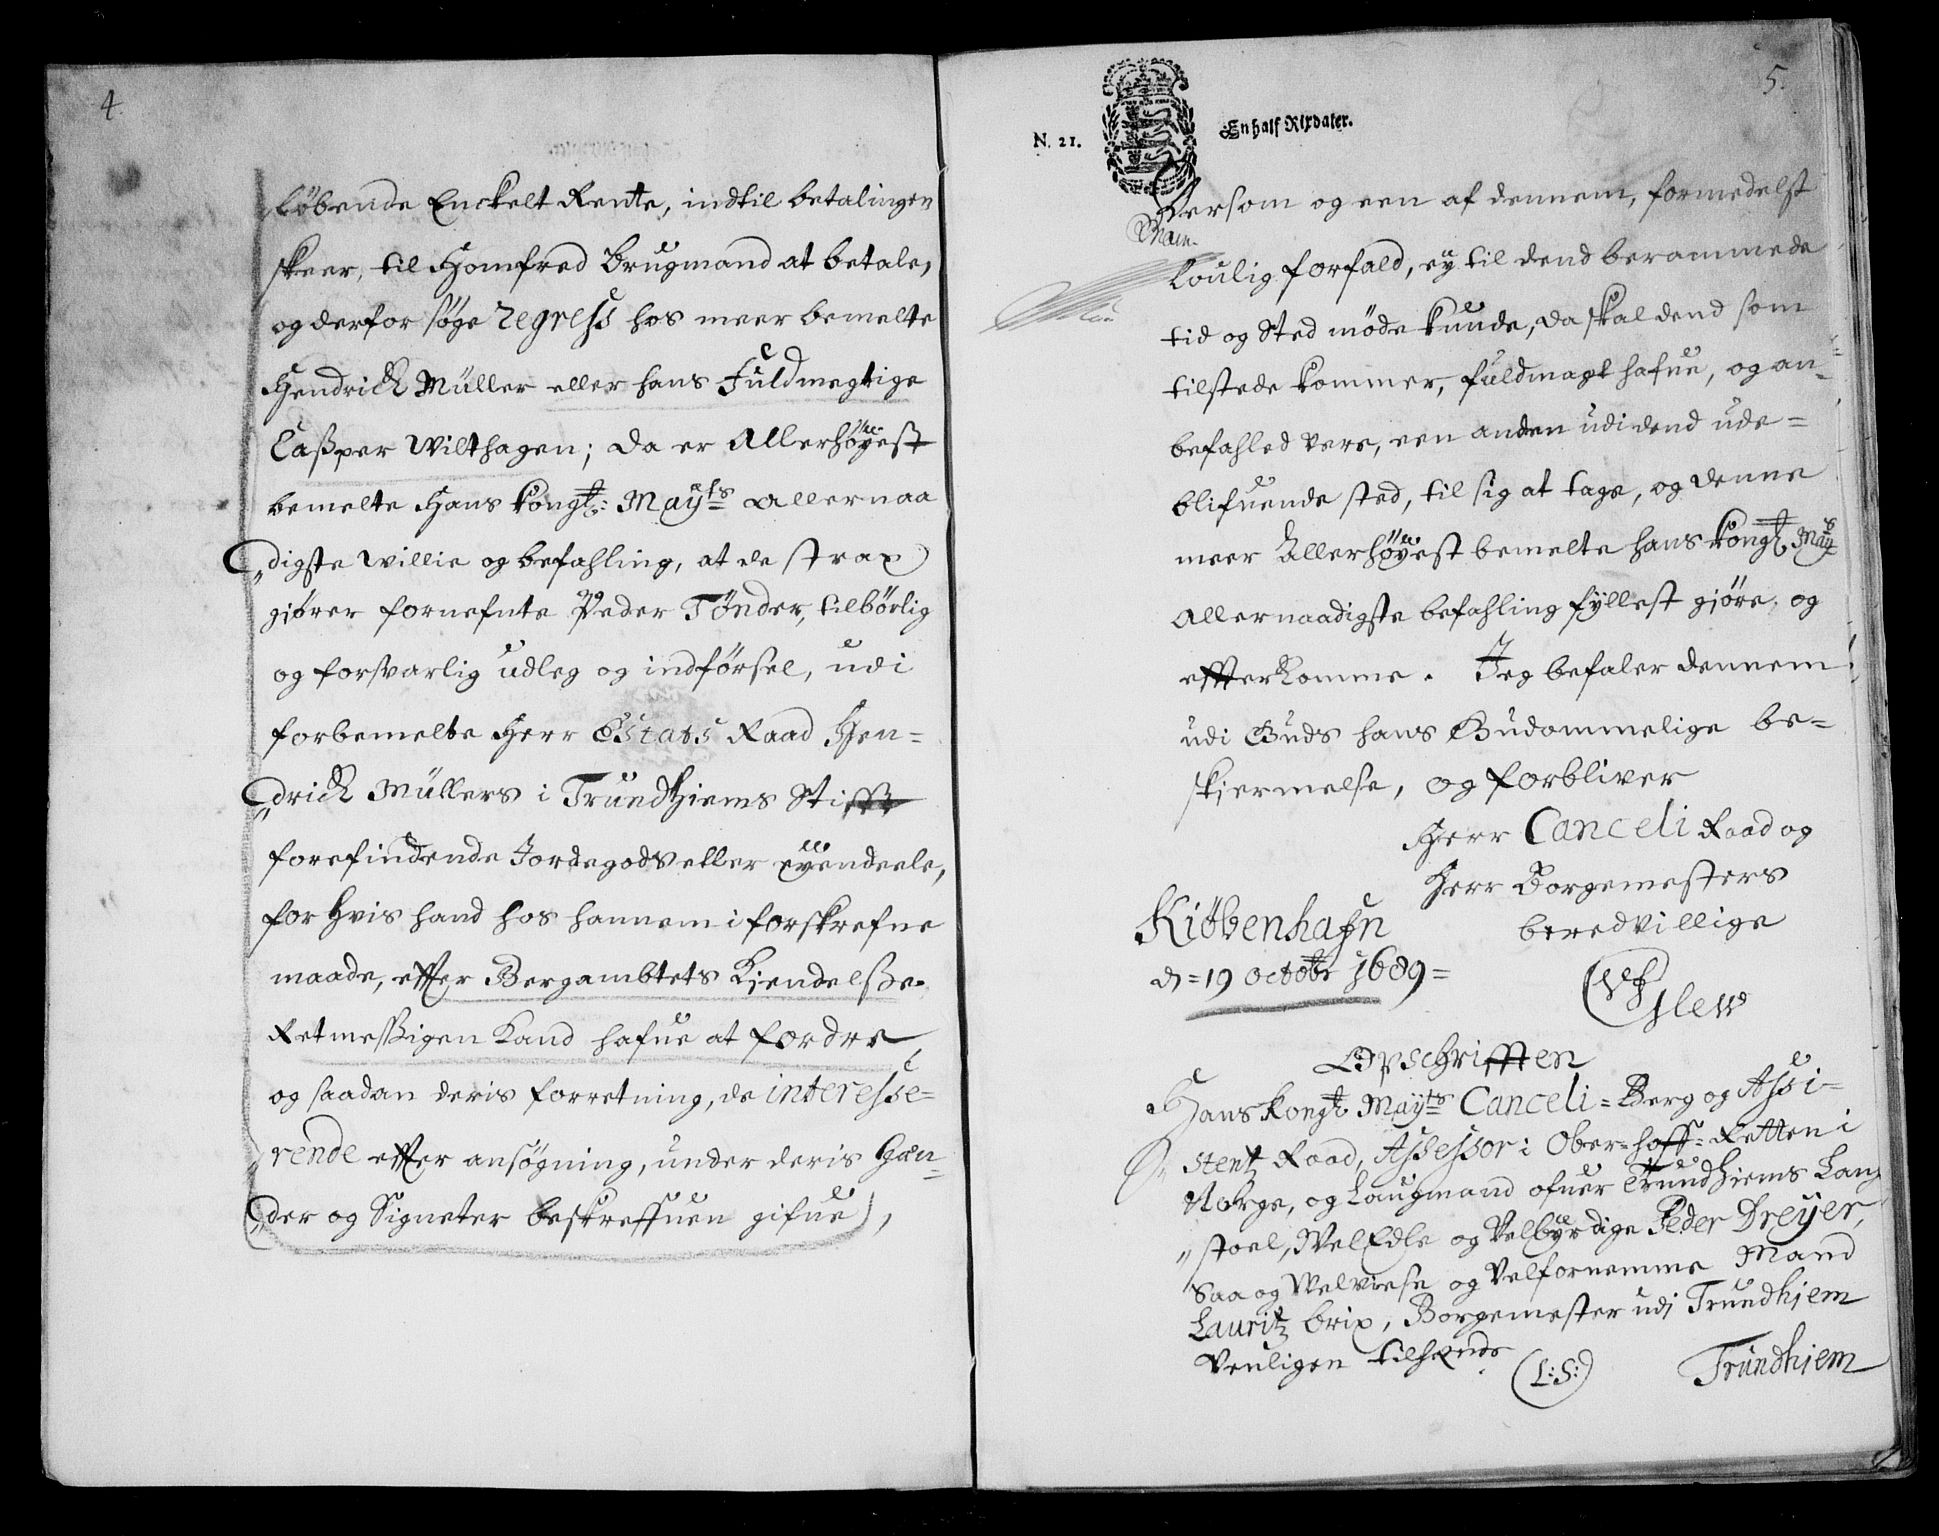 4.
løbende Enckelt Rente, indtil betalingen
skeer, til Homfred Brugmand at betale,
og derfor søge regress hos meer bemelte
Hendrich Müller eller hans Fuldmegtige
Casper Wilthagen; da er Allerhøyest
bemelte Hans Kongl: Mayts Allernaa
„digste Willie og befahling, at de strax
giører fornefnte Peder Tønder, tilbørlig
og forsvarlig udleg og indførsel, udi
forbemelte Herr Estats Raad Hen=
„drich Müllers i Trundhiems Stifft
forefindende Jordegods eller eyendeele,
for hvis hand hos hannem i forskrefne
maade, effter Bergambtets Kiendelsse
Retmessigen Kand hafue at fordre,
og saadan deris forretning, de interesse=
rende effter ansøgning, under deris Hæn=
„der og Signeter beskreffuen gifue,
5.
N. 21.
En half Rixdaler.
Dersom og een af dennem, formedelst
loulig forfald, ey til dend berammede
tid og Sted møde kunde, da skal dend som
tilstede kommer, fuldmagt hafue, og an=
befahled vere, een anden udi dend ude=
blifuende sted, til sig at tage, og denne
meer Allerhøyest bemelte hans Kongl Mayts
Allernaadigste befahling fyllest giøre, og
effterkomme. Jeg befaler dennem
udi Guds hans Gudommelige be=
skiermelse, og forbliver
Herr Canceli Raad og
Herr Borgemesters
beredvillige
Kiøbenhafn
d=19 octobr 1689=
Opschrifften
Hans Kongl Mayts Canceli= Berg og Assi=
stentz Raad, Assessor i Ober=hoff=Retten i
Norge, og Laugmand ofuer Trundhiems Laug
„stoel, WelEdle og Velbyrdige Peder Dreyer,
Saa og Welviese og Velfornemme Mand
Lauritz Brix, Borgemester udj Trundhjem
Venligen tilhende
(L:S:)
Trundhjem